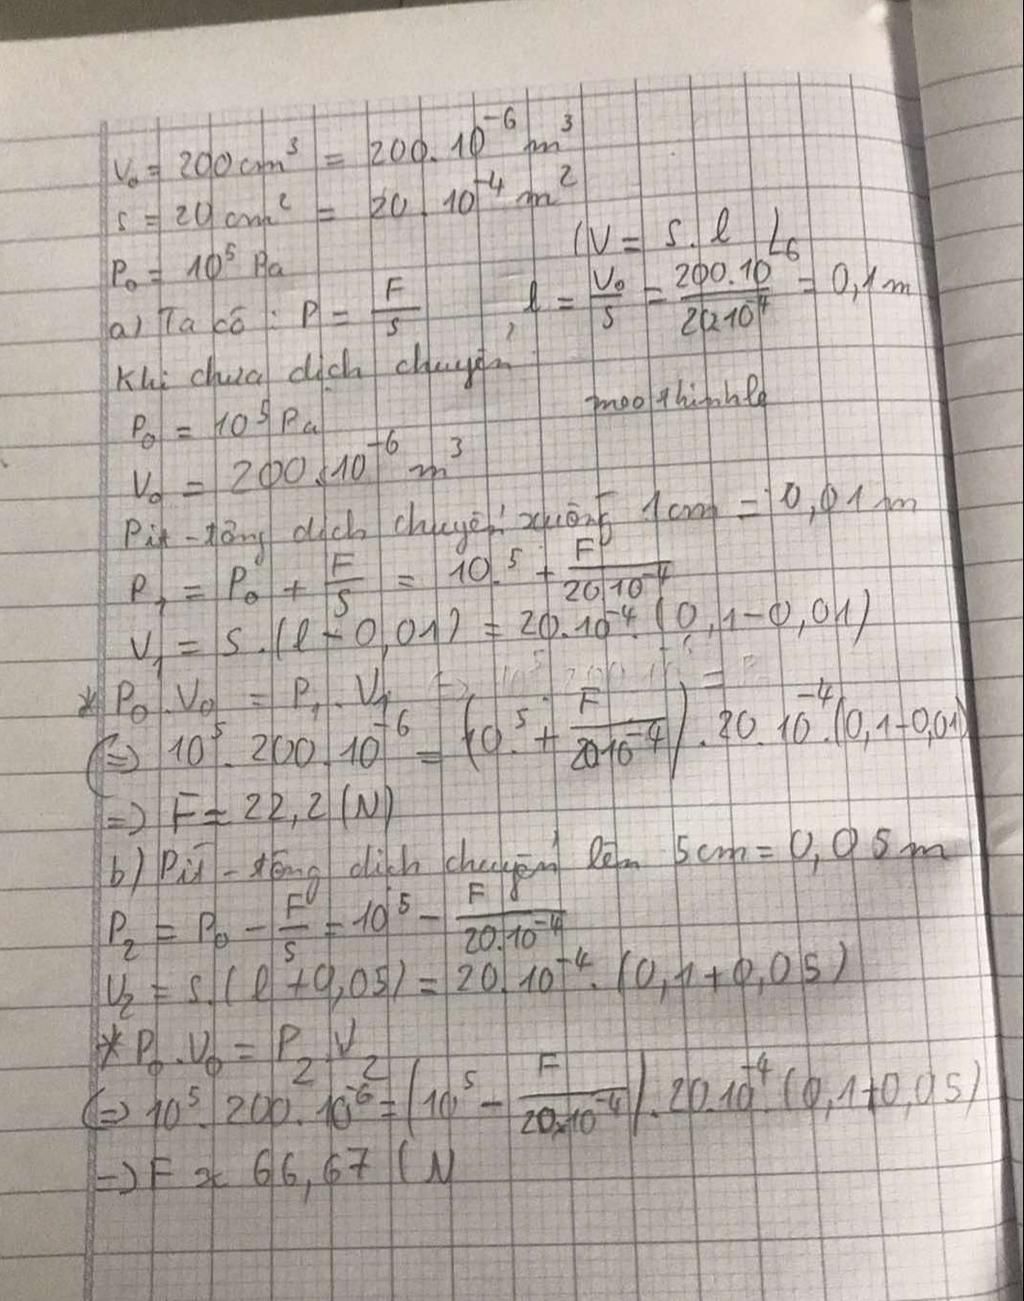 V₀ = 200cm³ = 200.10⁻⁶ m³
S = 20cm² = 20.10⁻⁴ m²
P₀ = 10⁵ Pa
(V = S.l
a) Ta có : P = F/S , l = V₀/S = 200.10⁻⁶/20.10⁻⁴ = 0,1m
Khi chưa dịch chuyển
P₀ = 10⁵ Pa
V₀ = 200.10⁻⁶ m³
Pít-tông dịch chuyển xuống 1cm = 0,01m
P₁ = P₀ + F/S = 10⁵ + F/20.10⁻⁴
V₁ = S.(l-0,01) = 20.10⁻⁴.(0,1-0,01)
* P₀.V₀ = P₁.V₁
(=) 10⁵.200.10⁻⁶ = (10⁵ + F/20.10⁻⁴).20.10⁻⁴.(0,1-0,01)
=) F = 22,2 (N)
b) Pít-tông dịch chuyển lên 5cm = 0,05m
P₂ = P₀ - F/S = 10⁵ - F/20.10⁻⁴
V₂ = S.(l+0,05) = 20.10⁻⁴.(0,1+0,05)
* P₀.V₀ = P₂V₂
(=) 10⁵.200.10⁻⁶ = (10⁵ - F/20.10⁻⁴).20.10⁻⁴.(0,1+0,05)
=) F ≈ 66,67 (N